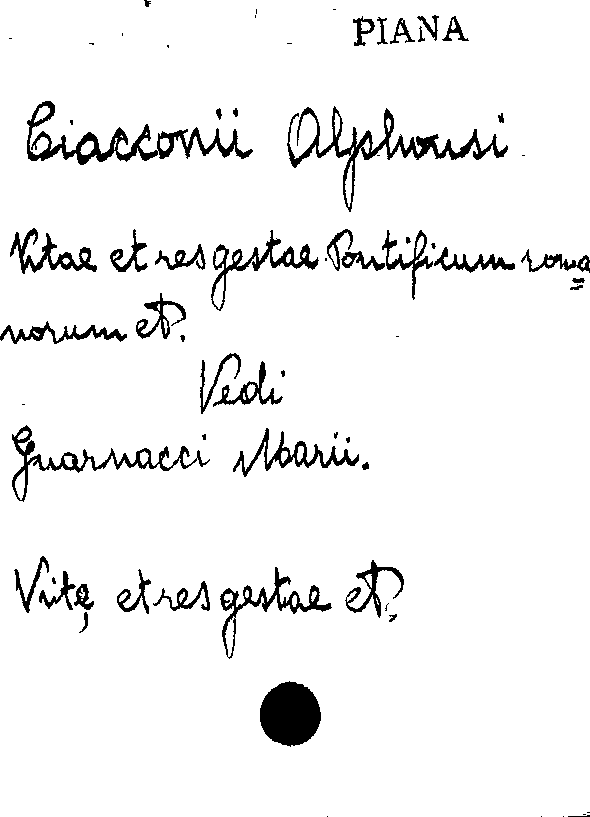 PIANA
Ciacconii Alphonsi
Vitae et res gestae Pontificum roma=
norum et.
Vedi
Guarnacci Marii.
Vitę et res gestae et.